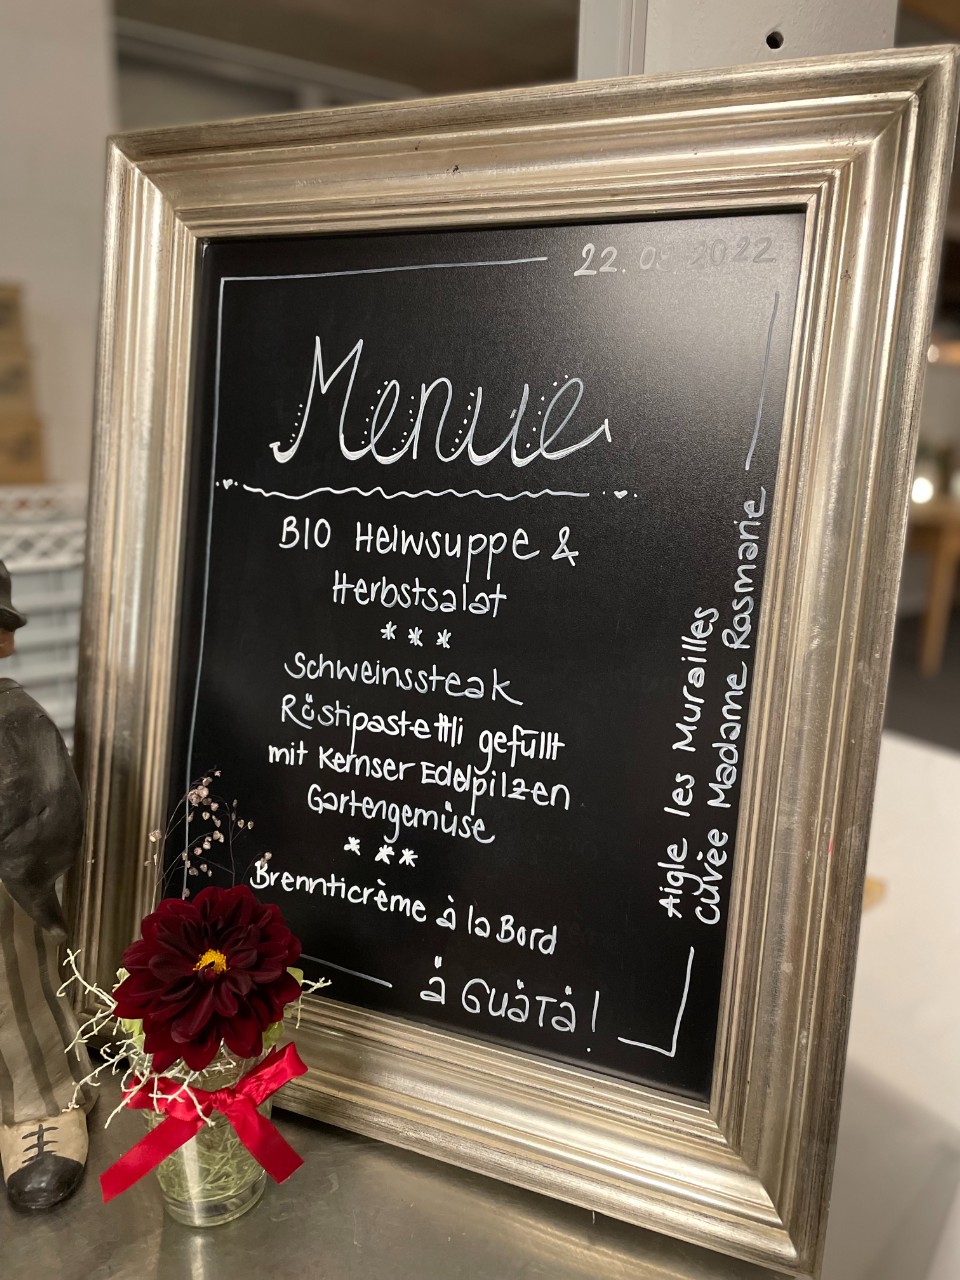 22.09.2022
Menue
BIO Heiwsuppe &
Herbstsalat
***
Schweinssteak
Röstipastettli gefüllt
mit Kernser Edelpilzen
Gartengemüse
***
Brennticrème à la Bord
ä GUÄTÄ!
Aigle les Murailles
Cuvée Madame Rosmarie